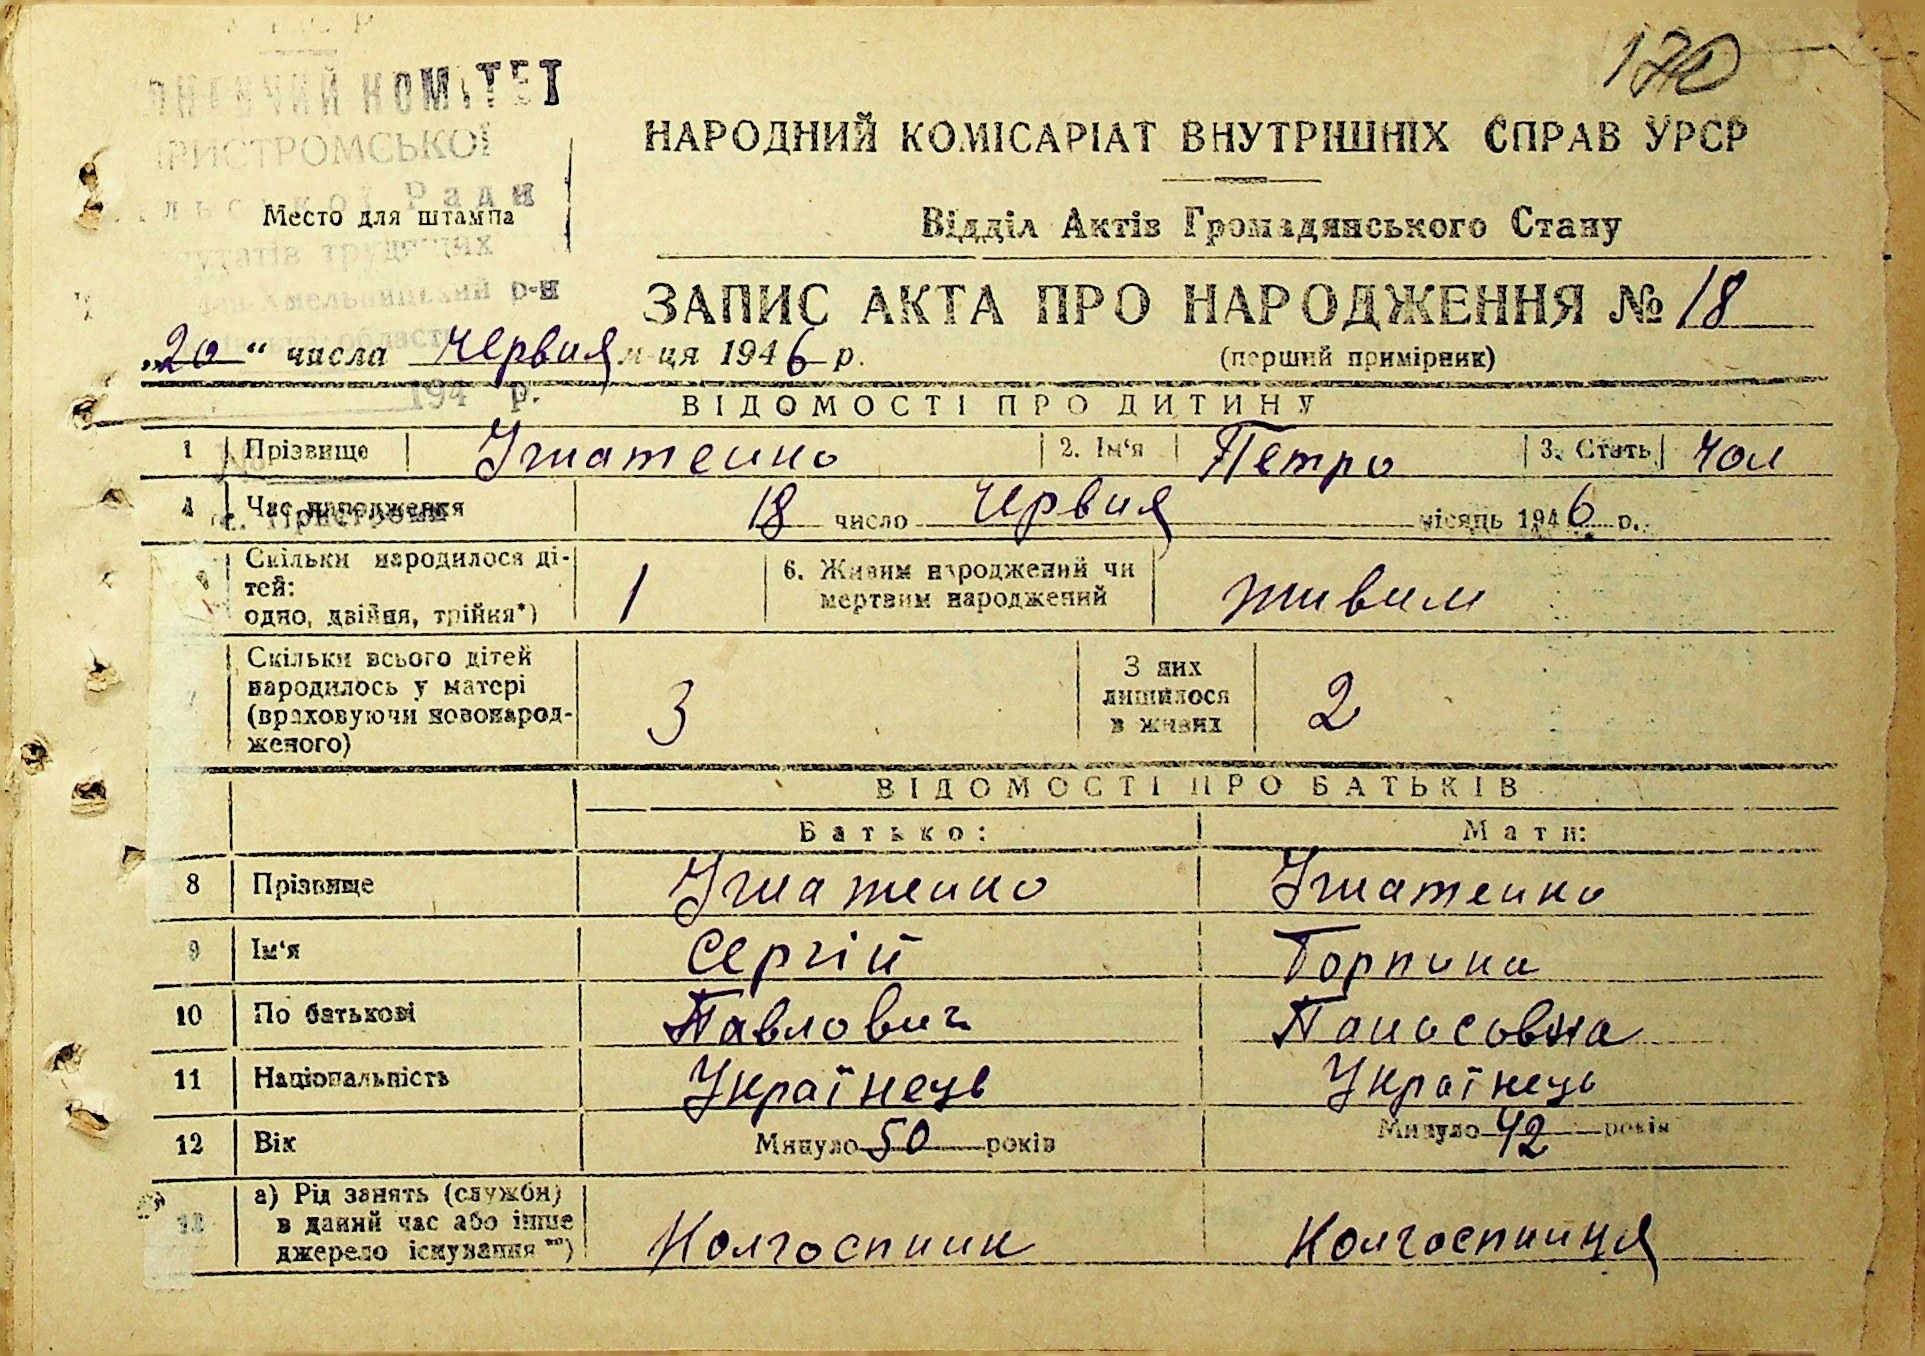 170
КОМІТЕТ
ПРИСТРОМСЬКОЇ
Ради
трудящих
р-н
194 р.
НАРОДНИЙ КОМІСАРІАТ ВНУТРІШНІХ СПРАВ УРСР
Место для штампа
Відділ Актів Громадянського Стану
ЗАПИС АКТА ПРО НАРОДЖЕННЯ № 18
„20“ числа червня м-ця 1946 р.
(перший примірник)
ВІДОМОСТІ ПРО ДИТИНУ
1 Прізвище Ігнатенко 2. Ім'я Петро 3. Стать чол
4 Час народження 18 число червня місяць 1946 р.
Скільки народилося ді-
тей:
одно, двійня, трійня*)
1
6. Живим народжений чи
мертвим народжений
живим
Скільки всього дітей
народилось у матері
(враховуючи новонарод-
женого)
3
З них
лишилося
в живих
2
ВІДОМОСТІ ПРО БАТЬКІВ
Батько: Мати:
8 Прізвище Ігнатенко Ігнатенко
9 Ім'я Сергій Горпина
10 По батькові Павлович Панасовна
11 Національність Українець Українець
12 Вік Минуло 50 років Минуло 42 років
а) Рід занять (служби)
в даний час або інше
джерело існування **)
Колгоспник Колгоспниця